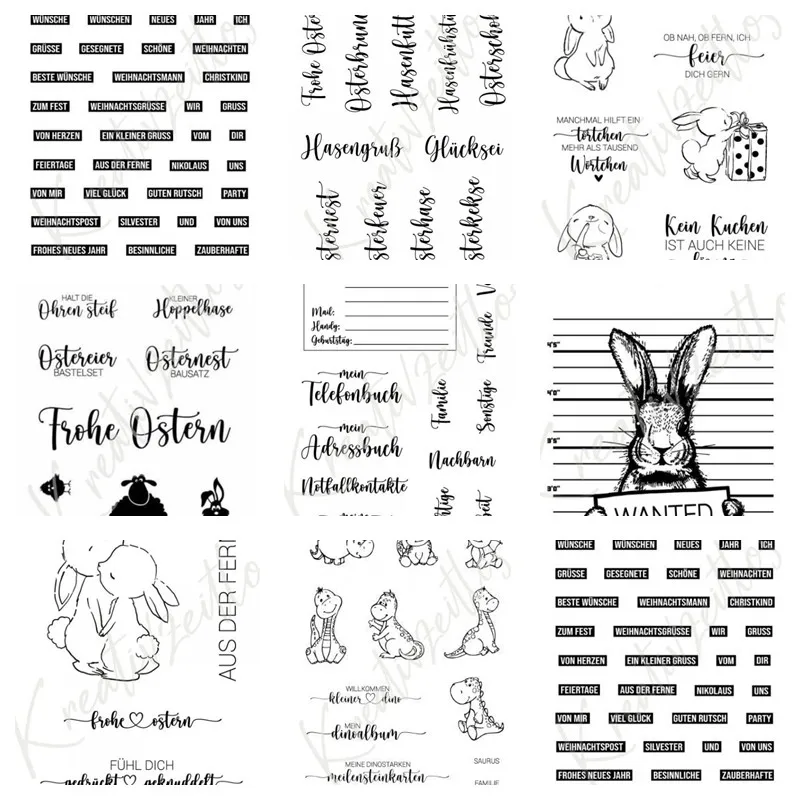 WÜNSCHE WÜNSCHEN NEUES JAHR ICH
GRÜSSE GESEGNETE SCHÖNE WEIHNACHTEN
BESTE WÜNSCHE WEIHNACHTSMANN CHRISTKIND
ZUM FEST WEIHNACHTSGRÜSSE WIR GRUSS
VON HERZEN EIN KLEINER GRUSS VOM DIR
FEIERTAGE AUS DER FERNE NIKOLAUS UNS
VON MIR VIEL GLÜCK GUTEN RUTSCH PARTY
WEIHNACHTSPOST SILVESTER UND VON UNS
FROHES NEUES JAHR BESINNLICHE ZAUBERHAFTE
Frohe
Hasengruß Glücksei
sternest
sterfeuer
sterhase
sterkekse
OB NAH, OB FERN, ICH
feier
DICH GERN
MANCHMAL HILFT EIN
törtchen
MEHR ALS TAUSEND
Wörtchen
Kein Kuchen
IST AUCH KEINE
HALT DIE
Ohren steif
KLEINER
Hoppelhase
Ostereier
BASTELSET
Osternest
BAUSATZ
Frohe Ostern
Mail:
Handy:
Geburtstag:
mein
Telefonbuch
mein
Adressbuch
Notfallkontakte
Familie
Freunde
Sonstige
Nachbarn
WANTED
AUS DER FER
frohe ostern
FÜHL DICH
gedrückt geknuddelt
WILLKOMMEN
kleiner dino
MEIN
dinoalbum
MEINE DINOSTARKEN
meilensteinkarten
SAURUS
FAMILIE
WÜNSCHE WÜNSCHEN NEUES JAHR ICH
GRÜSSE GESEGNETE SCHÖNE WEIHNACHTEN
BESTE WÜNSCHE WEIHNACHTSMANN CHRISTKIND
ZUM FEST WEIHNACHTSGRÜSSE WIR GRUSS
VON HERZEN EIN KLEINER GRUSS VOM DIR
FEIERTAGE AUS DER FERNE NIKOLAUS UNS
VON MIR VIEL GLÜCK GUTEN RUTSCH PARTY
WEIHNACHTSPOST SILVESTER UND VON UNS
FROHES NEUES JAHR BESINNLICHE ZAUBERHAFTE
Kreativzeitlos